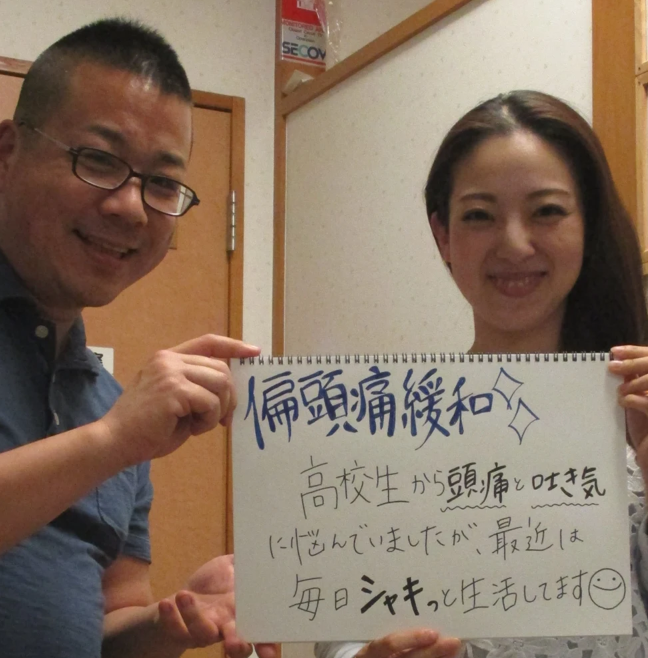 SECOM
偏頭痛緩和
高校生から頭痛と吐き気
に悩んでいましたが、最近は
毎日シャキっと生活してます